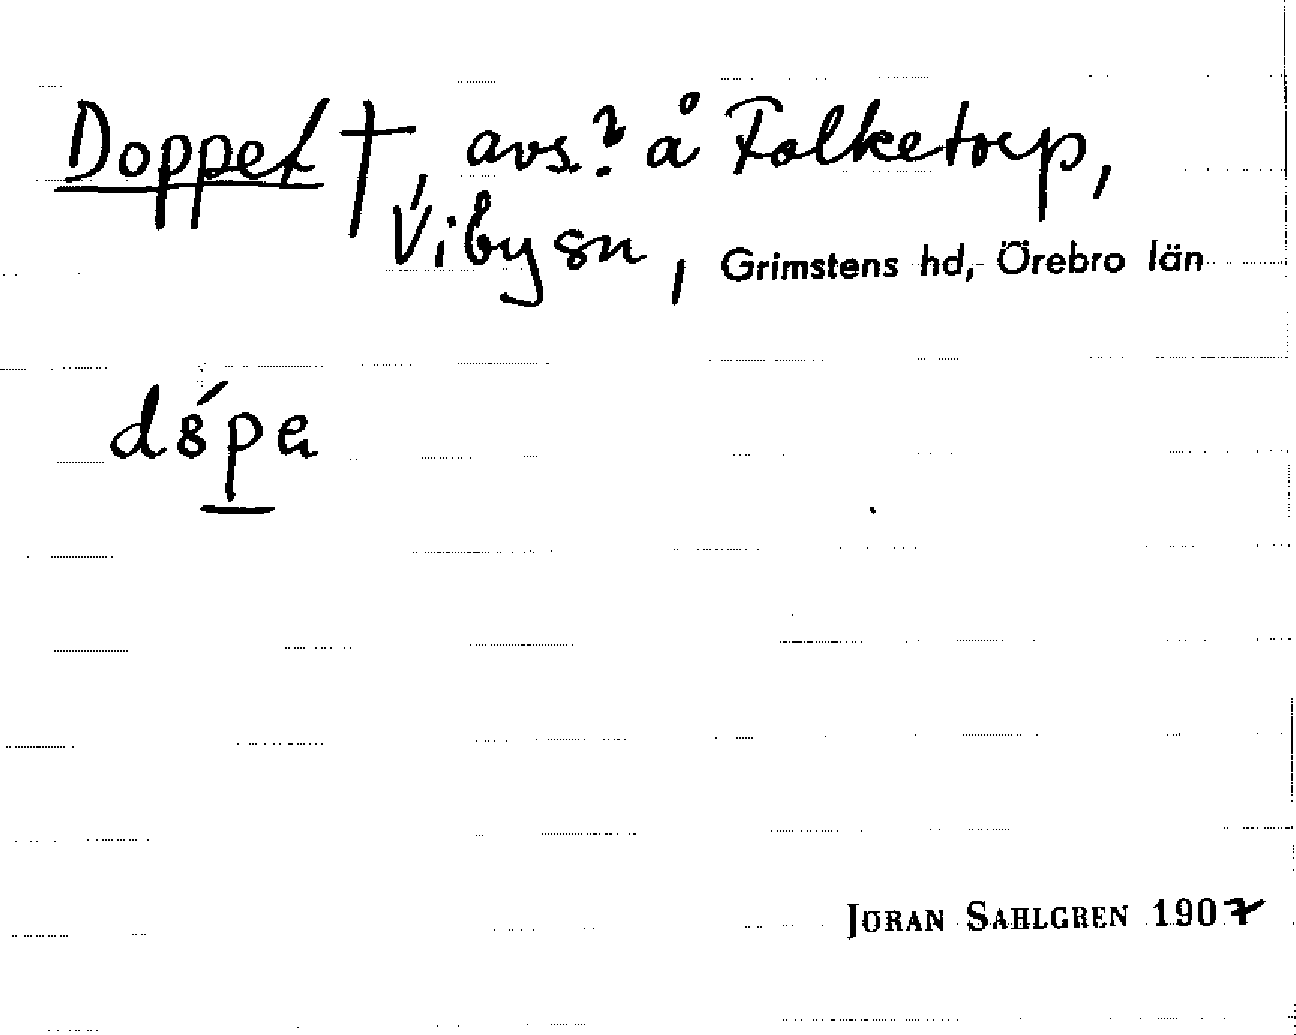 Doppet †, avs.? å Folketorp,
Viby sn, Grimstens hd, Örebro län
dȣ́pe
JÖRAN SAHLGREN 1907